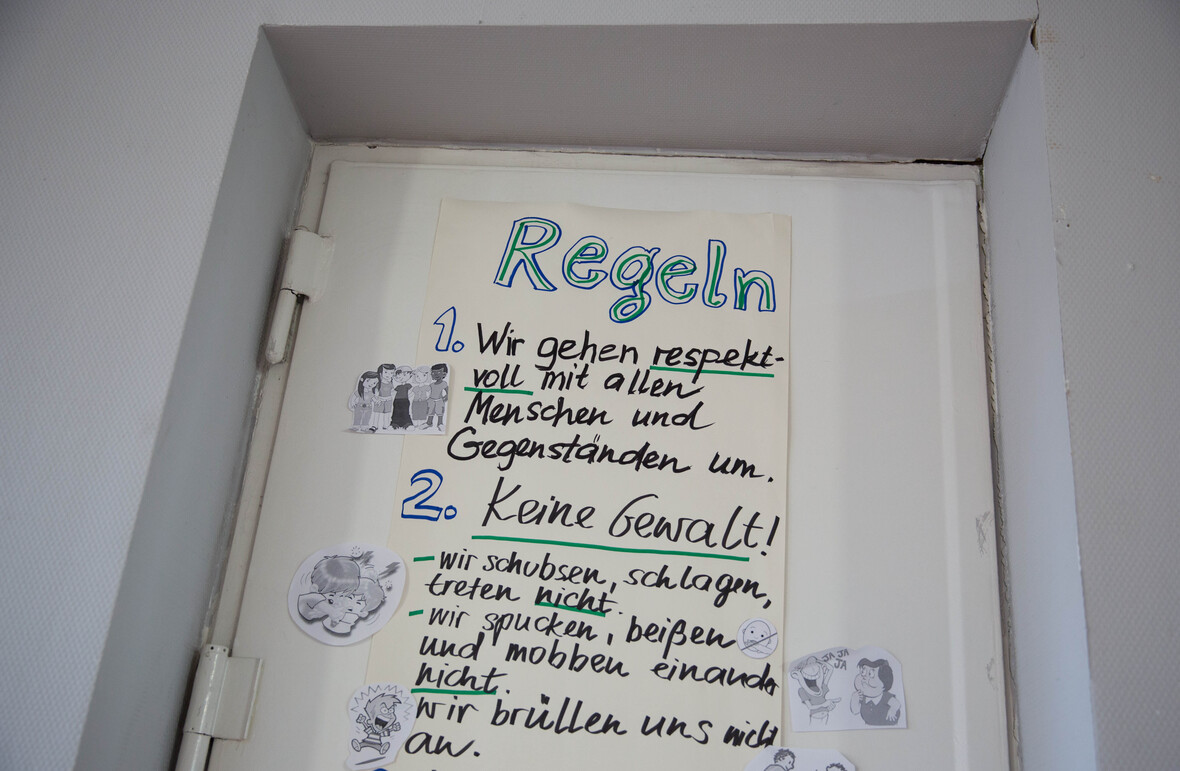 Regeln
1. Wir gehen respekt-
voll mit allen
Menschen und
Gegenständen um.
2. Keine Gewalt!
- wir schubsen, schlagen,
treten nicht.
- wir spucken, beißen
und mobben einander
nicht.
wir brüllen uns nicht
an.
JA JA
JA